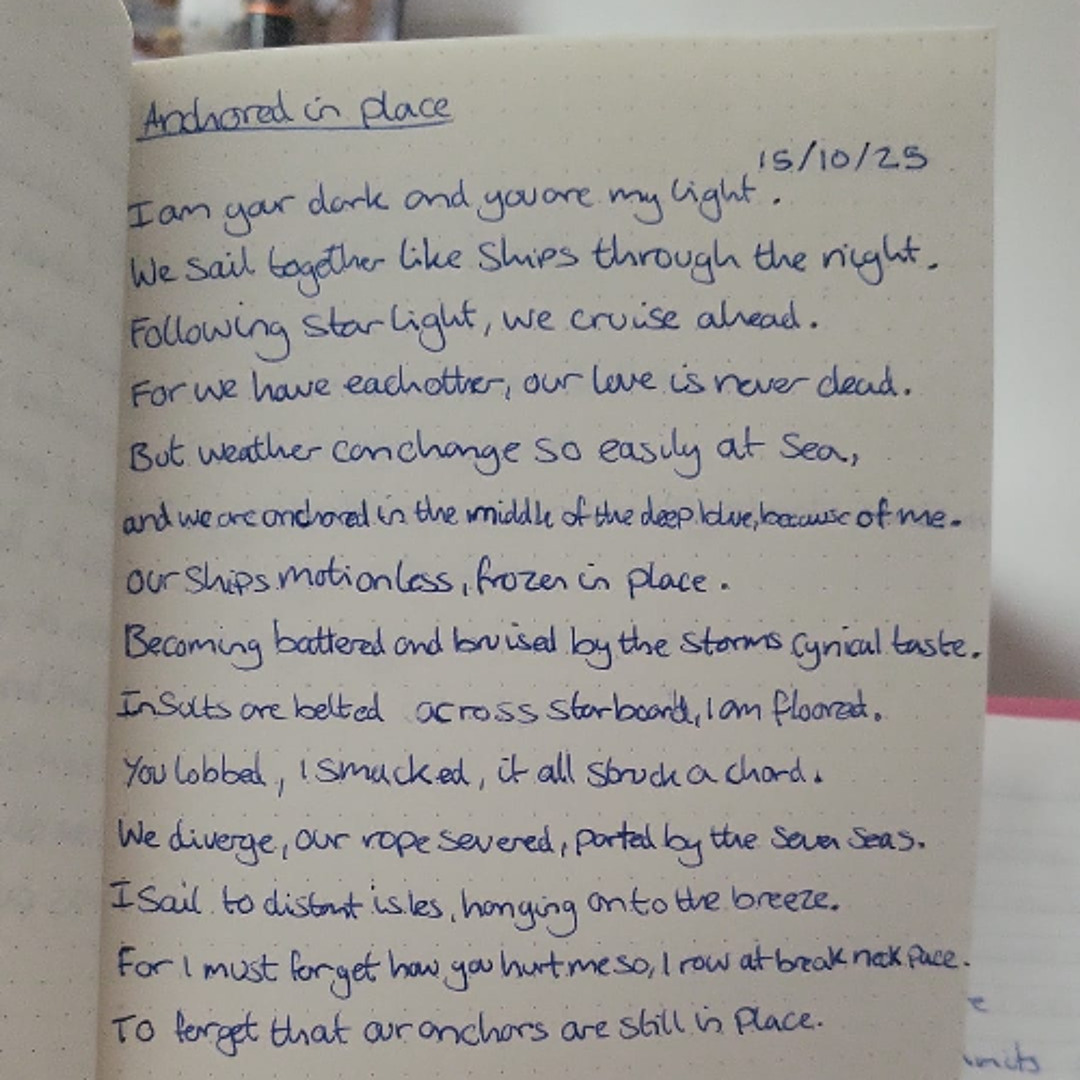 Anchored in place
15/10/25
I am your dark and you are my light.
We sail together like ships through the night.
Following star light, we cruise ahead.
For we have eachother, our love is never dead.
But weather can change so easily at sea,
and we are anchored in the middle of the deep blue, because of me.
our ships motionless, frozen in place.
Becoming battered and bruised by the storms cynical taste.
Insults are belted across starboard, I am floored.
You lobbed, I smacked, it all struck a chord.
We diverge, our rope severed, parted by the seven seas.
I sail to distant isles, hanging onto the breeze.
For I must forget how you hurt me so, I row at break neck pace.
To forget that our anchors are still in place.